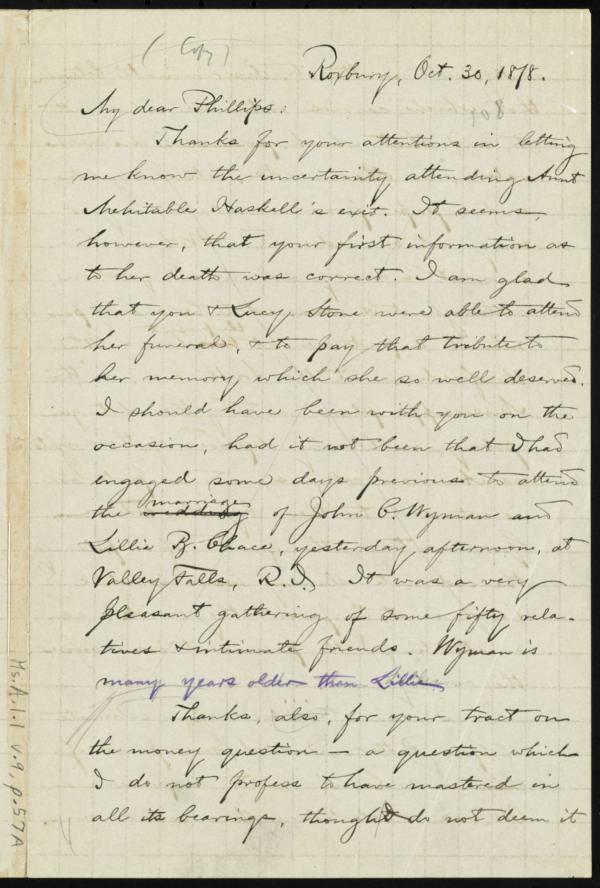 (Copy)
Roxbury, Oct. 30, 1878.
My dear Phillips:
Thanks for your attentions in letting
me know the uncertainty attending Aunt
Mehitable Haskell's exit. It seems,
however, that your first information as
to her death was correct. I am glad
that you & Lucy Stone were able to attend
her funeral, & to pay that tribute to
her memory which she so well deserved.
I should have been with you on the
occasion, had it not been that I had
engaged some days previous to attend
the wedding marriage of John C. Wyman and
Lillie B. Chace, yesterday afternoon, at
Valley Falls, R.I. It was a very
pleasant gathering of some fifty rela-
tives & intimate friends. Wyman is
many years older than Lillie.
Thanks, also, for your tract on
the money question — a question which
I do not profess to have mastered in
all its bearings, though I do not deem it
Ms.A.1.1 v.9, p.57A